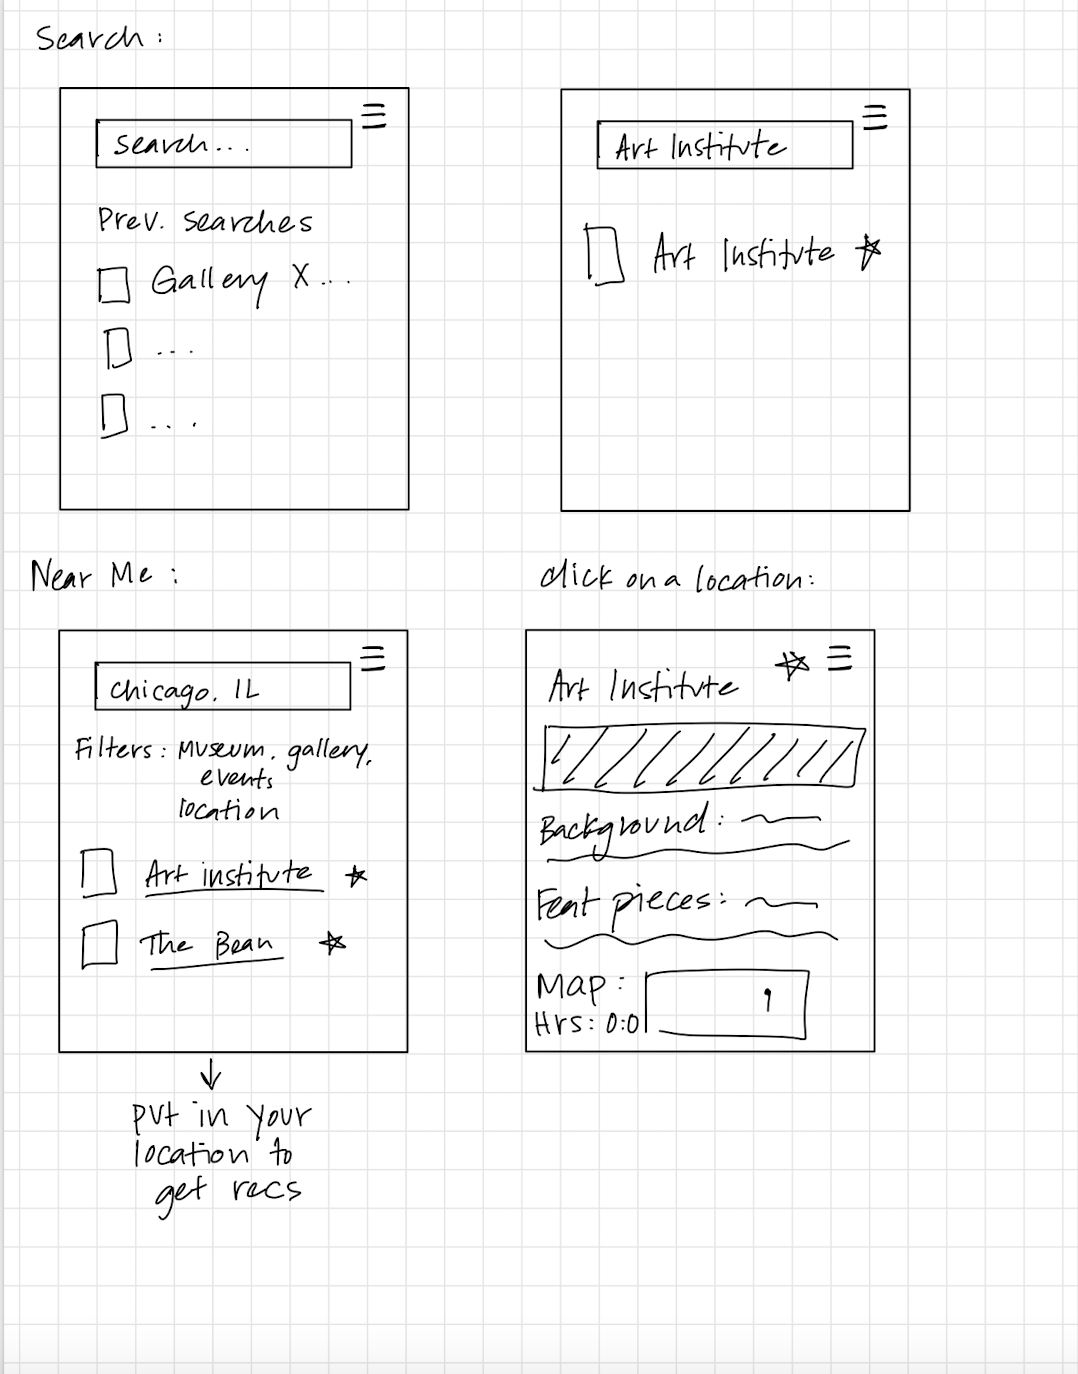 Search :
search...
Prev. searches
Gallery X...
...
...
Art Institute
Art Institute
Near Me :
Chicago, IL
Filters : Museum, gallery,
events
location
Art institute
The Bean
put in your
location to
get recs
click on a location:
Art Institute
Background :
Feat pieces :
Map :
Hrs: 0:0